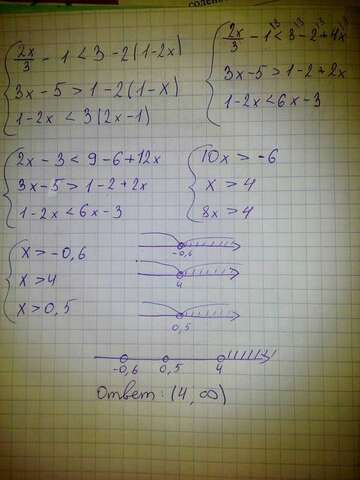 2x/3 - 1 < 3 - 2(1-2x)
3x-5 > 1-2(1-x)
1-2x < 3(2x-1)
2x/3 - 1 < 3 - 2 + 4x
3x-5 > 1-2+2x
1-2x < 6x-3
2x - 3 < 9 - 6 + 12x
3x-5 > 1-2+2x
1-2x < 6x-3
10x > -6
x > 4
8x > 4
x > -0,6
x > 4
x > 0,5
-0,6
4
0,5
-0,6 0,5 4
Ответ: (4; ∞)